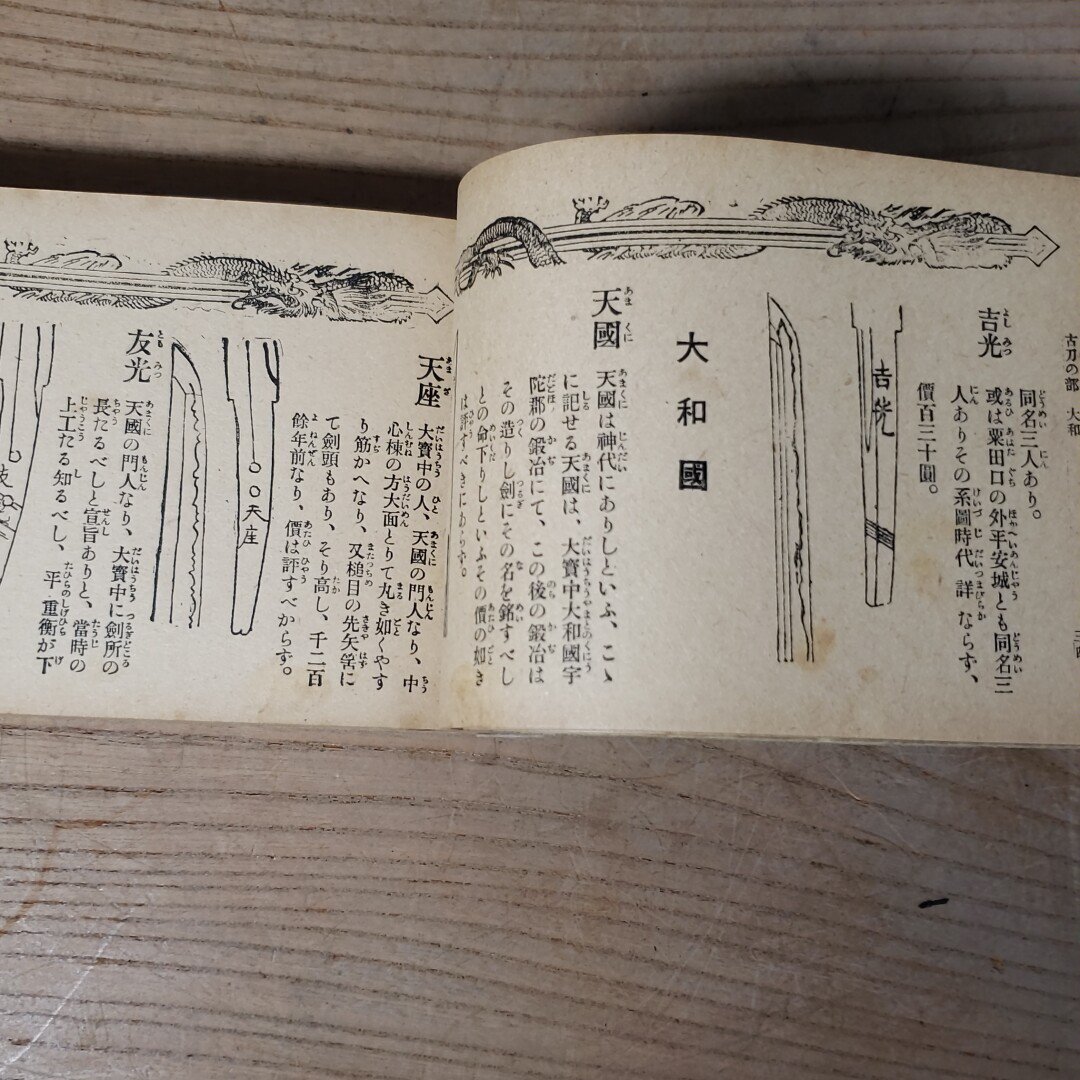 古刀の部 大和
同名三人あり。
吉光 或は粟田口の外平安城とも同名三
人ありその系圖時代詳ならず、
價百三十圓。
吉光
大和國
天國 天國は神代にありしといふ、こゝ
に記せる天國は、大寶中大和國宇
陀郡の鍛冶にて、この後の鍛冶は
その造りし劍にその名を銘すべし
との命下りしといふその價の如き
は評すべきにあらず。
天座 大寶中の人、天國の門人なり、中
心棟の方大面とりて丸き如くやす
り筋かへなり、又槌目の先矢筈に
て劍頭もあり、そり高し、千二百
餘年前なり、價は評すべからず。
天座
友光 天國の門人なり、大寶中に劍所の
長たるべしと宣旨ありと、當時の
上工たる知るべし、平重衡が下